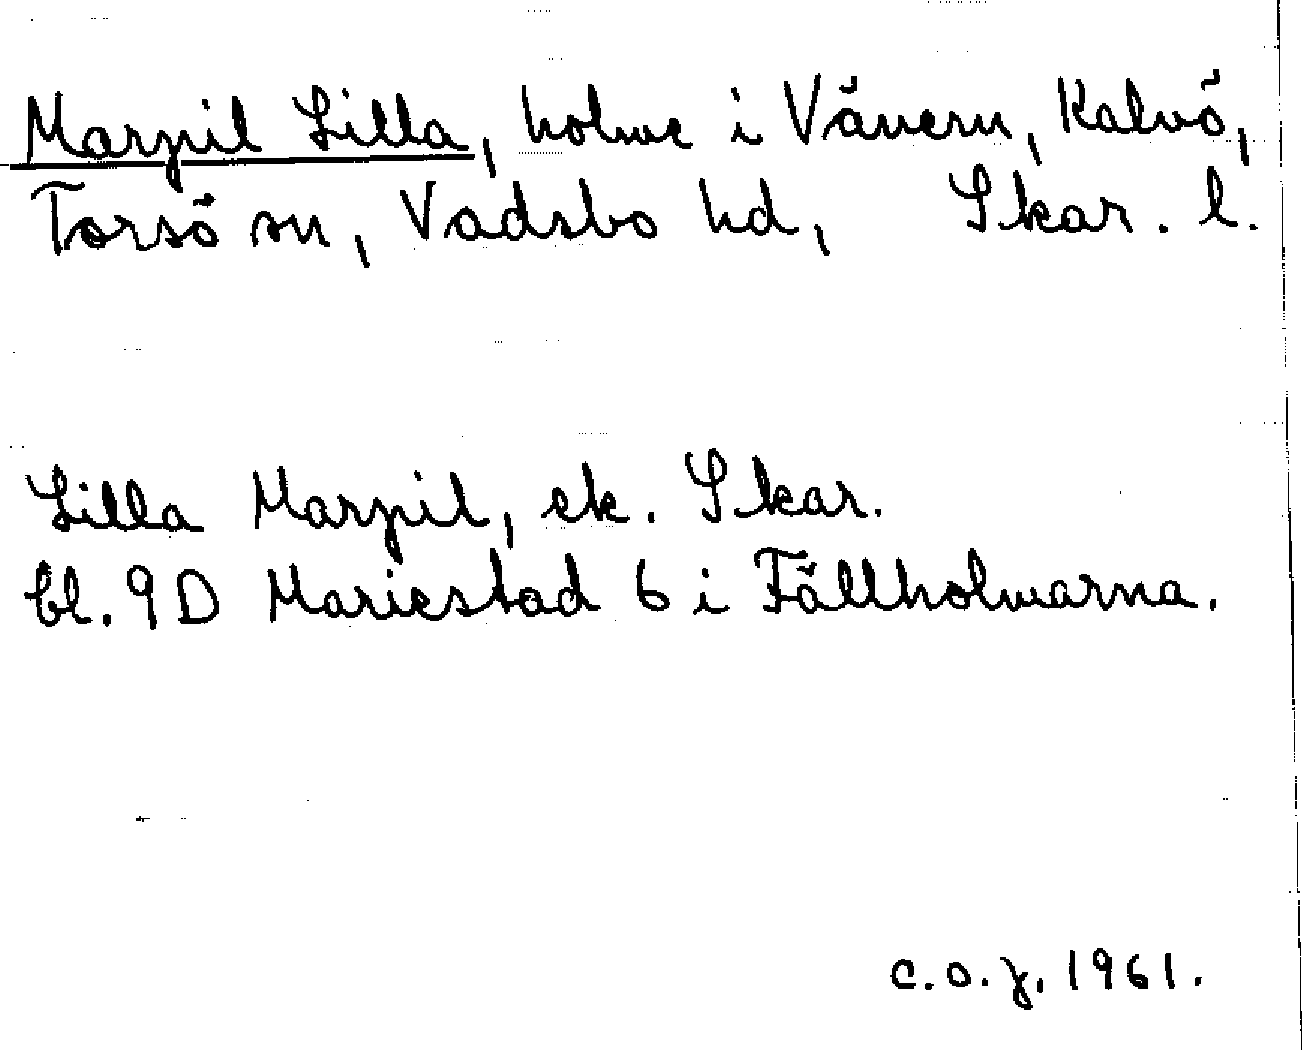 Marpil Lilla, holme i Vänern, Kalvö,
Torsö sn, Vadsbo hd, Skar. l.
Lilla Marpil, ek. Skar.
bl. 9D Mariestad 6 i Fällholmarna.
c.o.j. 1961.